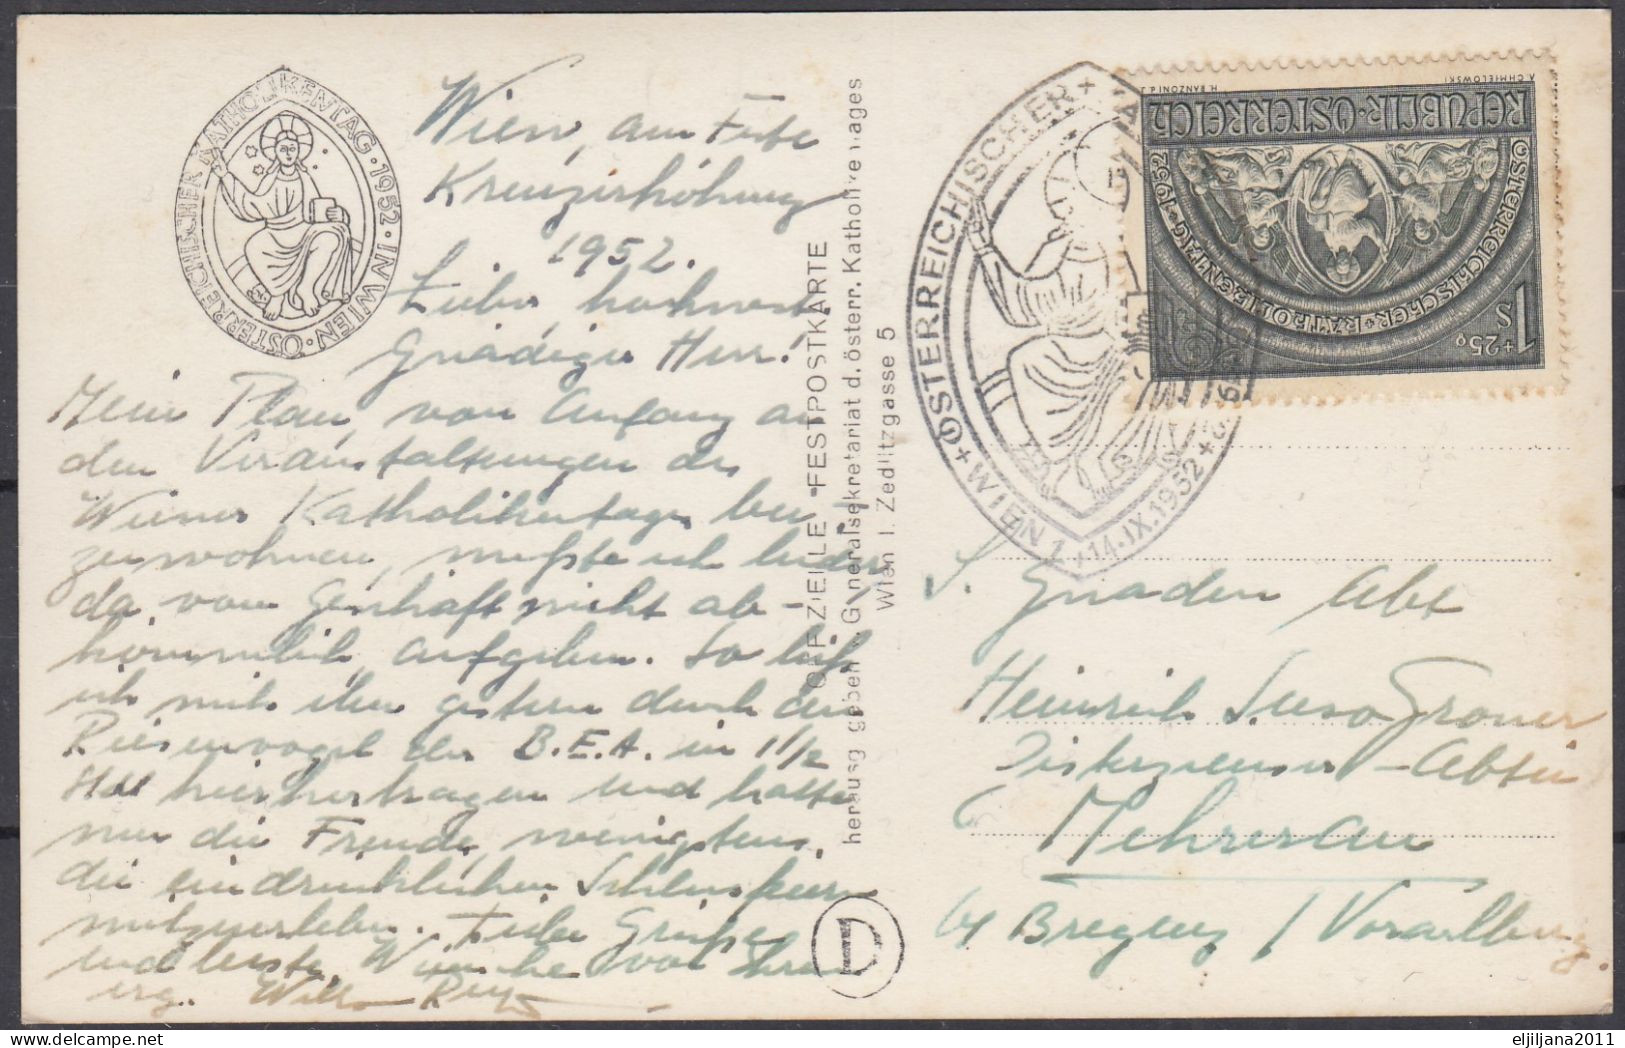 ÖSTERREICHISCHER KATHOLIKENTAG · 1952 · IN WIEN ·
Wien, am Feste
Kreuzerhöhung
1952.
Lieber, hochwst
Gnädiger Herr!
Mein Plan, von Anfang an
den Veranstaltungen des
Wiener Katholikentages bei-
zuwohnen, mußte ich leider
da vom Geschäft nicht ab-
kömmlich, aufgeben. So ließ
ich mich eben gestern durch den
Riesenvogel der B.E.A. in 1 1/2
Std hierhertragen und hatte
nur die Freude, wenigstens
die eindrucklichen Schlussfeiern
mitzuerleben. Liebe Grüße
und beste Wünsche von Ihrem
erg.
OFFIZIELLE FESTPOSTKARTE
herausgegeben v. Generalsekretariat d. österr. Katholikentages
Wien I. Zedlitzgasse 5
D
ÖSTERREICHISCHER
+ WIEN 1 + 14.IX.1952 +
REPUBLIK · ÖSTERREICH
ÖSTERREICHISCHER · KATHOLIKENTAG · 1952
1 S +25g
H. RANZONI d. J.
A. CHMIELOWSKI
S. Gnaden Abt
Heinrich Suso Groner
Zisterzienser-Abtei
Mehrerau
bei Bregenz / Vorarlberg.
eljiljana2011